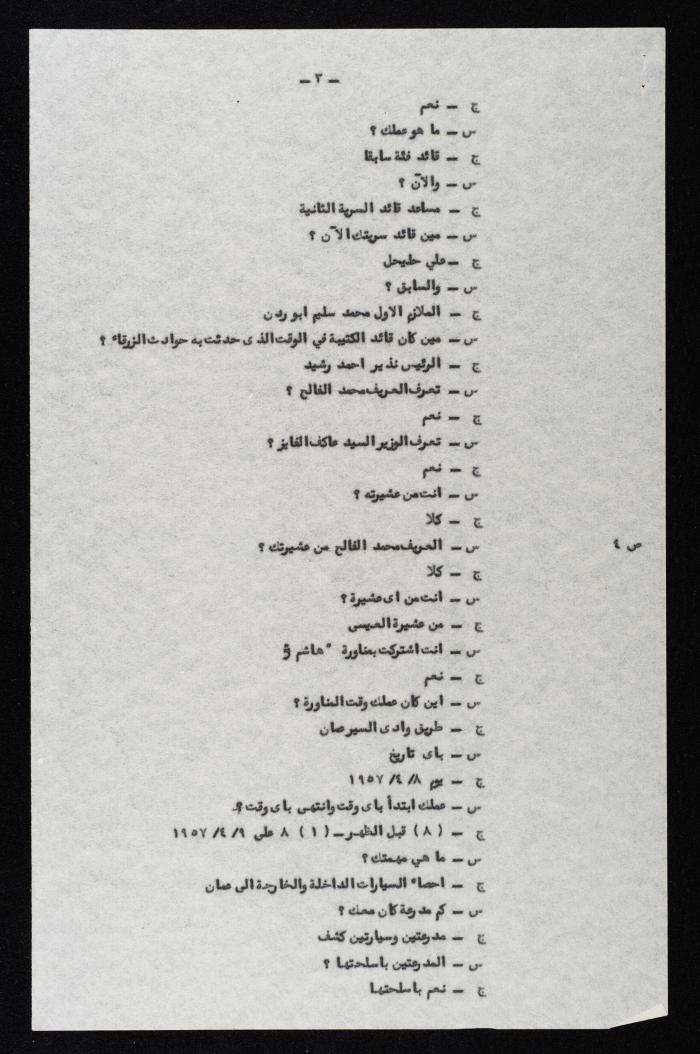 — ٣ —
ج — نعم
س — ما هو عملك ؟
ج — قائد فئة سابقا
س — والآن ؟
ج — مساعد قائد السرية الثانية
س — مين قائد سريتك الآن ؟
ج — علي حليحل
س — والسابق ؟
ج — الملازم الاول محمد سليم ابو ردن
س — مين كان قائد الكتيبة في الوقت الذي حدثت به حوادث الزرقاء ؟
ج — الرئيس نذير احمد رشيد
س — تعرف العريف محمد الفالح ؟
ج — نعم
س — تعرف الوزير السيد عاكف الفايز ؟
ج — نعم
س — انت من عشيرته ؟
ج — كلا
ص ٤ س — العريف محمد الفالح من عشيرتك ؟
ج — كلا
س — انت من اى عشيرة ؟
ج — من عشيرة العيسى
س — انت اشتركت بمناورة " هاشم
ج — نعم
س — اين كان عملك وقت المناورة ؟
ج — طريق وادى السير عمان
س — باى تاريخ
ج — يوم ٨/ ٤/ ١٩٥٧
س — عملك ابتدأ باى وقت وانتهى باى وقت ؟
ج — ( ٨ ) قبل الظهر — ( ١ ) ٨ على ٩/ ٤/ ١٩٥٧
س — ما هي مهمتك ؟
ج — احصاء السيارات الداخلة والخارجة الى عمان
س — كم مدرعة كان معك ؟
ج — مدرعتين وسيارتين كشف
س — المدرعتين باسلحتها ؟
ج — نعم باسلحتها